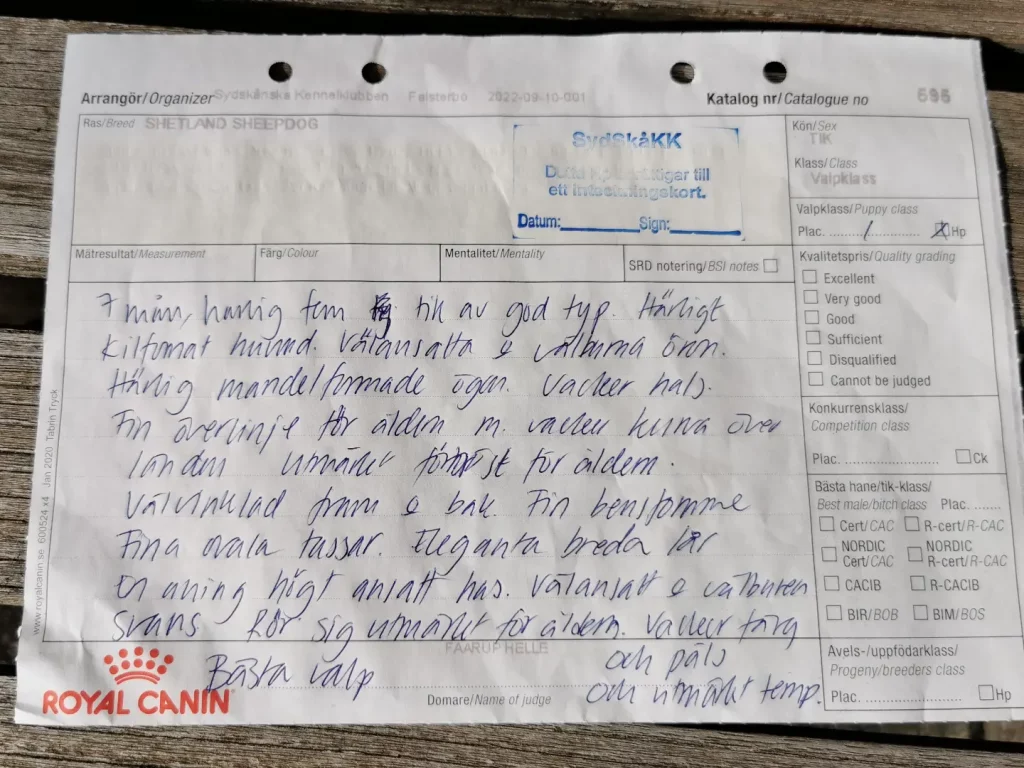 Arrangör/Organizer Sydskånska Kennelklubben Falsterbo 2022-09-10-001 Katalog nr/Catalogue no 595
Ras/Breed SHETLAND SHEEPDOG
SydSkåKK
till
ett
Datum: Sign:
Kön/Sex
TIK
Klass/Class
Valpklass
Valpklass/Puppy class
Plac. 1 Hp
Mätresultat/Measurement Färg/Colour Mentalitet/Mentality SRD notering/BSI notes
Kvalitetspris/Quality grading
Excellent
Very good
Good
Sufficient
Disqualified
Cannot be judged
Konkurrensklass/
Competition class
Plac. Ck
Bästa hane/tik-klass/
Best male/bitch class Plac.
Cert/CAC R-cert/R-CAC
NORDIC Cert/CAC NORDIC R-cert/R-CAC
CACIB R-CACIB
BIR/BOB BIM/BOS
Avels-/uppfödarklass/
Progeny/breeders class
Plac. Hp
7 mån, härlig fem tik av god typ. Härligt
kilfomat huvud. Välansatta & välburna öron.
Härlig mandelformade ögon. Vacker hals.
Fin överlinje för åldern m. vacker kurva över
länden Utmärkt förbröst för åldern.
Välvinklad fram & bak. Fin benstomme
Fina ovala tassar. Eleganta breda lår
En aning högt ansatt has. Välansatt & välburen
Svans Rör sig utmärkt för åldern. Vacker färg
och päls
och utmärkt temp.
Bästa valp
FAARUP HELLE
Domare/Name of judge
ROYAL CANIN
www.royalcanin.se 600524.x4 Jan 2020 Tabrin Tryck